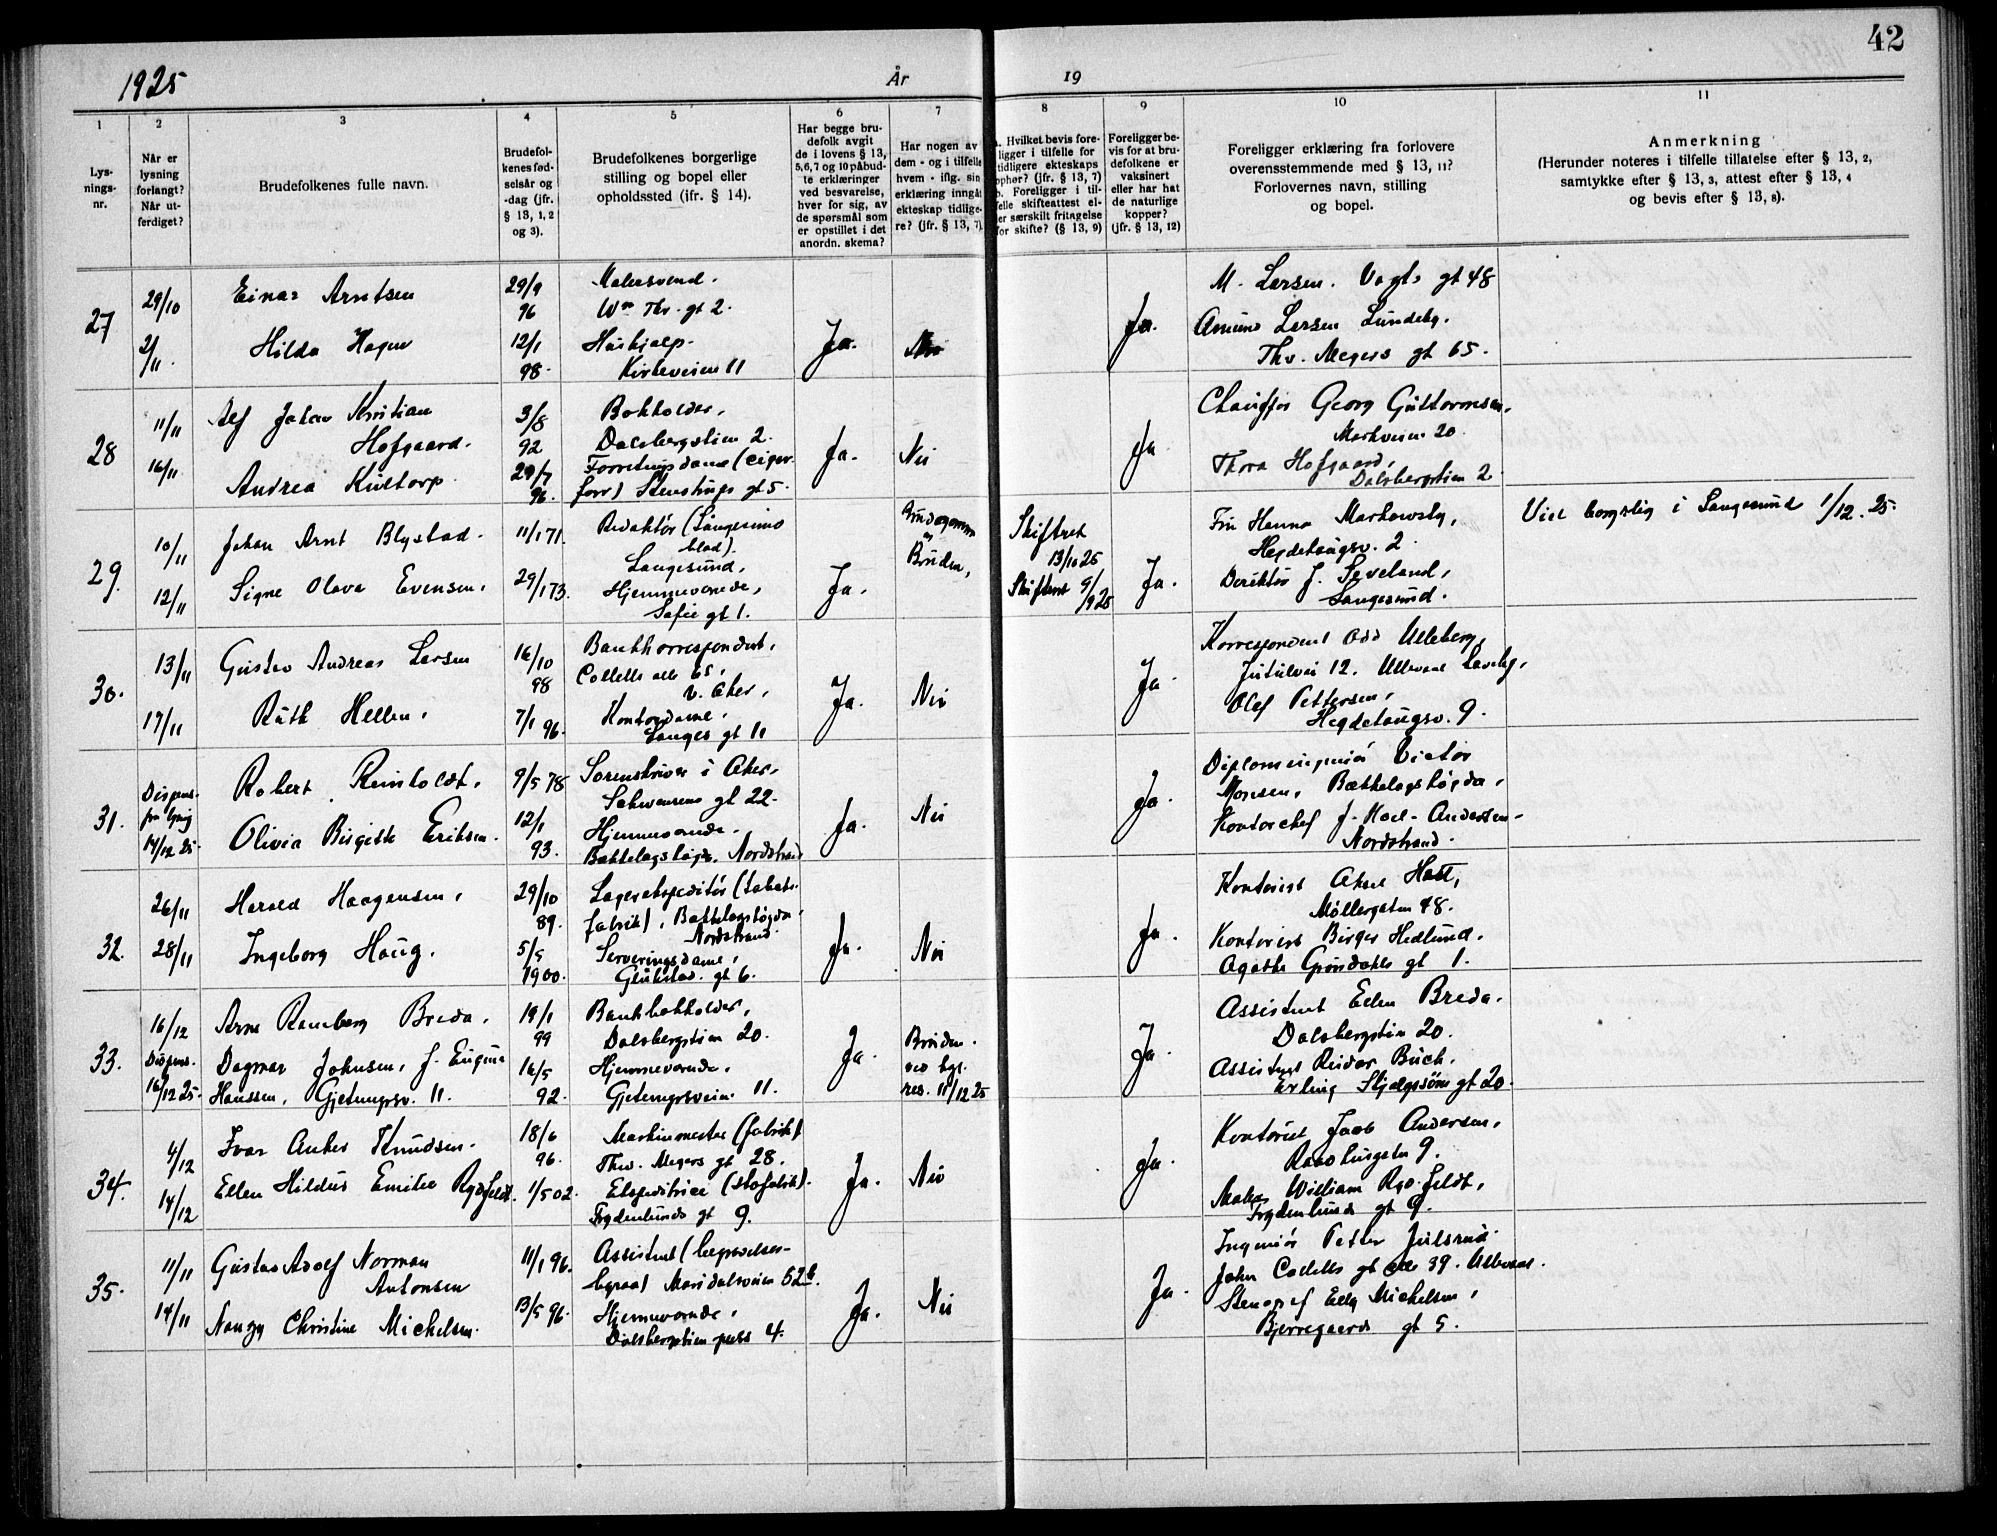 42
1925
År
19
1
2
3
4
5
6
7
8
9
10
11
Lys-
nings-
nr.
Når er
lysning
forlangt?
Når ut-
ferdiget?
Brudefolkenes fulle navn.
Brudefol-
kenes fød-
selsår og
-dag (jfr.
§ 13, 1, 2
og 3).
Brudefolkenes borgerlige
stilling og bopel eller
opholdssted (jfr. § 14).
Har begge bru-
defolk avgit
de i lovens § 13,
5,6,7 og 10 påbud-
te erklæringer
ved besvarelse,
hver for sig, av
de spørsmål som
er opstillet i det
anordn. skema?
Har nogen av
dem - og i tilfelle
hvem - iflg. sin
erklæring inngåt
ekteskap tidlige-
re? (jfr. § 13, 7)
Hvilket bevis fore-
ligger i tilfelle for
tidligere ekteskaps
ophør? (jfr. § 13, 7)
b. Foreligger i til-
felle skifteattest el-
er særskilt fritagelse
for skifte? (§ 13, 9)
Foreligger be-
vis for at bru-
defolkene er
vaksinert
eller har hat
de naturlige
kopper?
(jfr. § 13, 12)
Foreligger erklæring fra forlovere
overensstemmende med § 13, 11?
Forlovernes navn, stilling
og bopel.
Anmerkning
(Herunder noteres i tilfelle tillatelse efter § 13, 2,
samtykke efter § 13, 3, attest efter § 13, 4
og bevis efter § 13, 8).
27
29/10
2/11
Einar Arntsen
Hilda Hagen
29/9
96
12/1
98
Malersvend.
Wm Thr. gt 2.
Hushjælp.
Kirkeveien 11
Ja.
Nei
Ja.
M. Larsen. Vogts gt 48
Amund Larsen Lundeby.
Thv. Meyers gt 65.
28
11/11
16/11
Alf Johan Kristian
Hofgaard.
Andrea Kustorp.
3/8
92
29/7
96.
Bokholder,
Dalsbergstien 2.
Forretningsdame (cigar
forr) Stenstrups gt 5.
Ja.
Nei
Ja
Chauffør Georg Guttormsen,
Markveien 20.
Thora Hofgaard,
Dalsbergstien 2
29.
10/11
12/11
Johan Arnt Blystad.
Signe Olava Evensen.
11/1 71.
29/1 73.
Redaktør (Langesund
blad).
Langesund,
Hjemmeværende,
Sofie gt 1.
Ja.
Brudegommen
og
Bruden,
Skiftret
13/10 25
Skifteret 9/9 25
Ja.
Fru Hanna Markowsky,
Hegdehaugsv. 2.
Direktør J. Seveland,
Langesund.
Viet borgerlig i Langesund 1/12. 25.
30.
13/11
17/11
Gustav Andreas Larsen
Ruth Hellen.
16/10
98
7/1 96.
Bankkorrespondent,
Colletts alle 65,
V. Aker,
Kontordame,
Langes gt 11
Ja.
Nei
Ja
Korrespondent Odd Ulleberg,
Jutulvei 12. Ullevaal Haveby,
Olef Pettersen,
Hegdehaugsv. 9.
31.
Dispens.
fra lysnig
14/12 25.
Robert Reinholdt.
Olivia Birgitte Eriksen.
9/5 78
12/1
93.
Sorenskriver i Aker,
Schwensens gt 22.
Hjemmeværende.
Bækkelagshøgda, Nordstrand
Ja.
Nei
Ja.
Diplomingeniør Victor
Monsen, Bækkelagshøgda,
Kontorchef J. Koel-Andersen-
Nordstrand.
32.
26/11
28/11
Harald Haagensen,
Ingeborg Haug.
29/10
89.
5/5
1900.
Lagerekspeditør (tobaks-
fabrik), Bækkelagshøgda,
Nordstrand.
Serveringsdame,
Glukstad. gt 6.
Ja.
Nei
Ja.
Kontorist Aksel Hatt,
Møllergaten 48.
Kontorist Birger Hedlund.
Agathe Grøndahls gt 1.
33.
16/12
Dispens.
16/12 25.
Arne Ramberg Breda.
Dagmar Johnsen, f. Eugenie
Hanssen, Gjetemyrsv. 11.
19/1
99
16/5
92.
Bankbokholder,
Dalsbergstien 20.
Hjemmeværende,
Gjetemyrsveien 11.
Ja.
Bruden.
ved kgl.
res. 11/12 25
Ja.
Assistent Ellen Breda.
Dalsbergstien 20.
Assistent Reidar Buch.
Erling Skjalgsøns gt 20.
34.
4/12
14/12
Ivar Anker Knudsen.
Ellen Hildur Emilie Rydfeldt.
18/6
96.
1/5 02.
Maskinmester (fabrik)
Thv. Meyers gt 28.
Ekspeditrice (skofabrik).
Frydenlunds gt 9.
Ja.
Nei
Ja.
Kontorist Jacob Andersen,
Raadhusgaten 9.
Maler William Rydfeldt,
Frydenlunds gt 9.
35.
11/11
14/11
Gustav Adolf Norman
Antonsen
Nanzy Christine Michelsen.
11/1 96.
13/5 96.
Assistent (begravelses-
byraa) Maridalsveien 62b.
Hjemmeværende,
Dalsbergstien 4.
Ja.
Nei
Ja.
Ingeniør Petter Julsrud
John Colletts alle 39. Ullevaal.
Stenograf Elly Michelsen,
Bjerregaards gt 5.